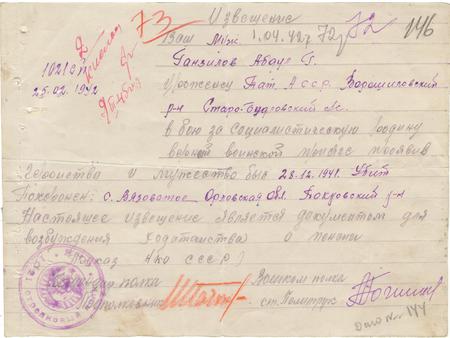 Извещение
73
72
146
Ваш муж. 1.04.42г
Ганзилов Абдул Г.
1021 сп
25.02.1942
Уроженец Тат. АССР. Ворошиловский
р-н Старо- с/с.
в бою за социалистическую родину
верный воинской присяге проявив
геройство и мужество был 28.12.1941. Убит
Похоронен: с. Вязоватое Орловская обл. Покровский р-н
Настоящее извещение является документом для
возбуждения ходатайства о пенсии
(Приказ НКО СССР)
Командир полка Военком полка
Подполковник ст. Политрук